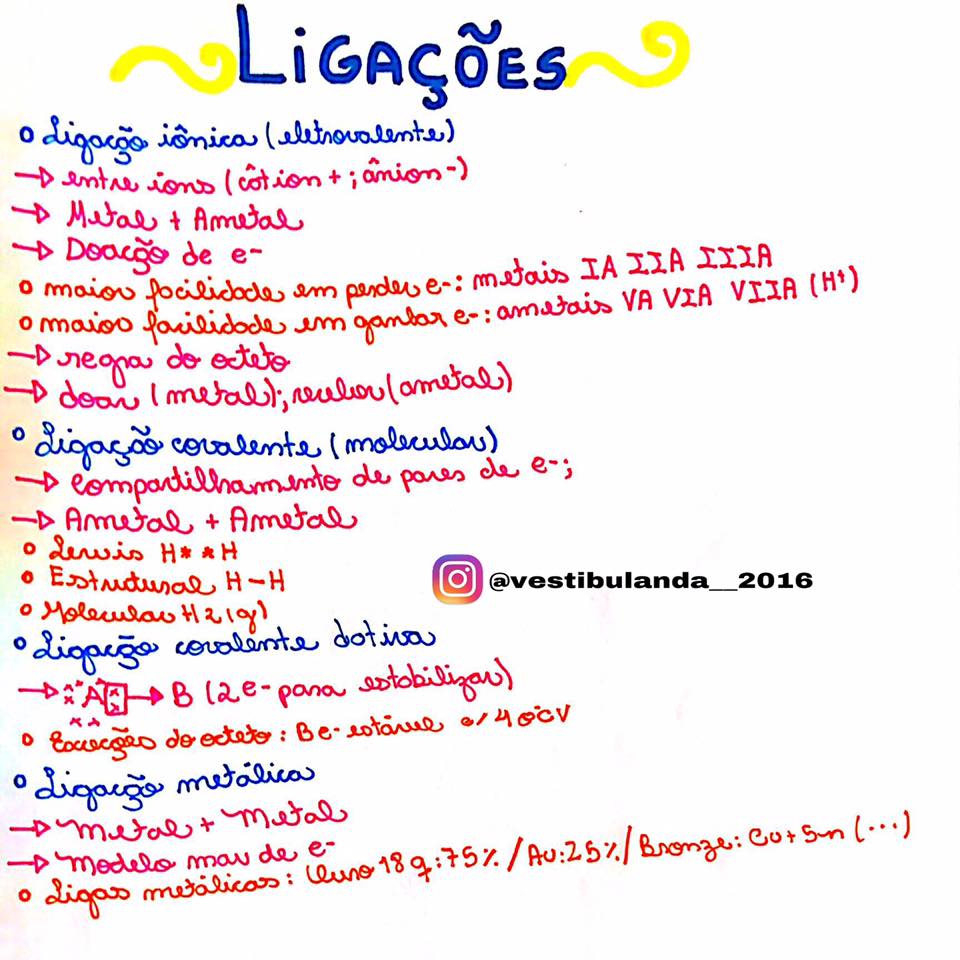 LIGAÇÕES
o Ligação iônica (eletrovalente)
→ entre íons (cátion + ; ânion -)
→ Metal + Ametal
→ Doação de e-
o maior facilidade em perder e-: metais IA IIA IIIA
o maior facilidade em ganhar e-: ametais VA VIA VIIA (H+)
→ regra do octeto
→ doar (metal); receber (ametal)
o Ligação covalente (molecular)
→ Compartilhamento de pares de e-;
→ Ametal + Ametal
o Lewis H* *H
o Estrutural H-H
o Molecular H2(g)
@vestibulanda__2016
o Ligação covalente dativa
→ A → B (2 e- para estabilizar)
o Exceções do octeto: Be- estável c/ 4 e- CV
o Ligação metálica
→ Metal + Metal
→ Modelo mar de e-
o Ligas metálicas: Ouro 18 q: 75% / Au: 25% / Bronze: Cu + Sn (...)